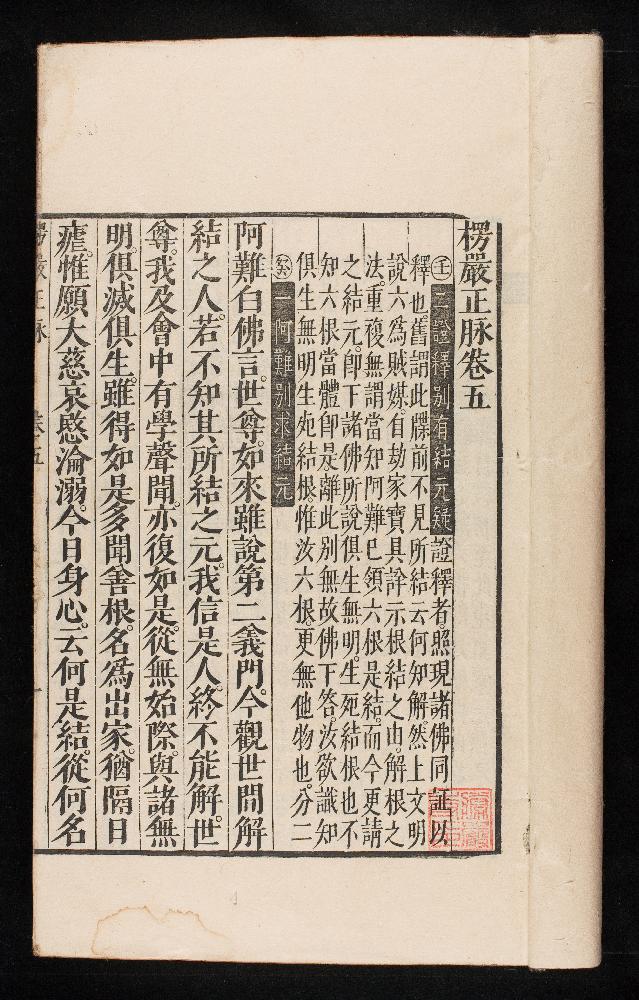 楞嚴正脉卷五
㊂三證釋別有結元疑證釋者照現諸佛同証以
釋也舊謂此牒前不見所結云何知解然上文明
說六為賊媒自劫家寶具詮示根結之由解根之
法重複無謂當知阿難巳領六根是結而今更請
之結元即下諸佛所說俱生無明生死結根也不
知六根當體即是離此別無故佛下答汝欲識知
俱生無明生死結根惟汝六根更無他物也分二
㊌一阿難別求結元
阿難白佛言世尊如來雖說第二義門今觀世間解
結之人若不知其所結之元我信是人終不能解世
尊我及會中有學聲聞亦復如是從無始際與諸無
明俱滅俱生雖得如是多聞善根名為出家猶隔日
瘧惟願大慈哀愍淪溺今日身心云何是結從何名
楞嚴正脉 卷五